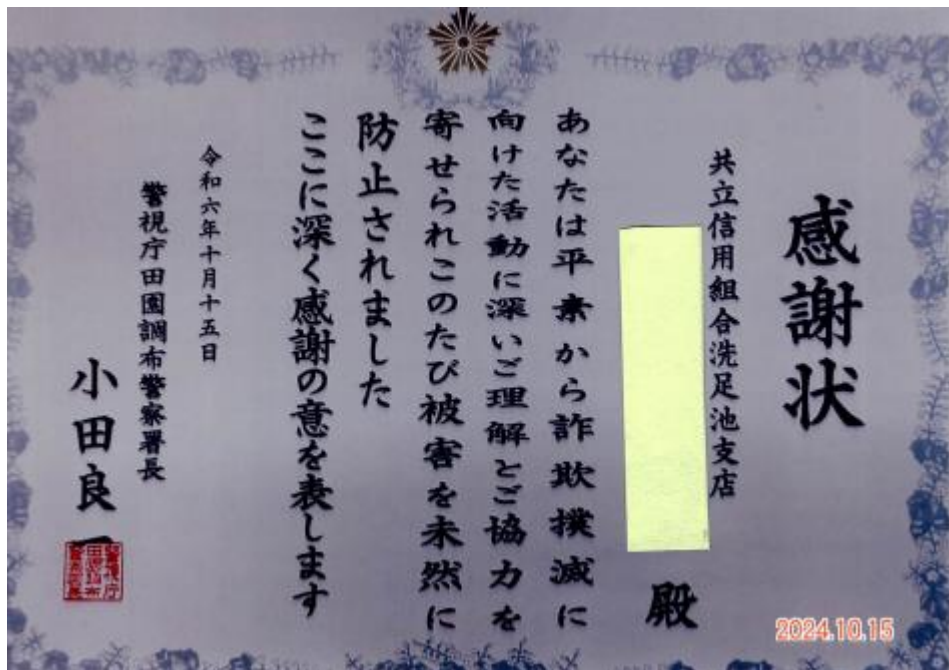 感謝状
共立信用組合洗足池支店
殿
あなたは平素から詐欺撲滅に
向けた活動に深いご理解とご協力を
寄せられこのたび被害を未然に
防止されました
ここに深く感謝の意を表します
令和六年十月十五日
警視庁田園調布警察署長
小田良一
2024.10.15